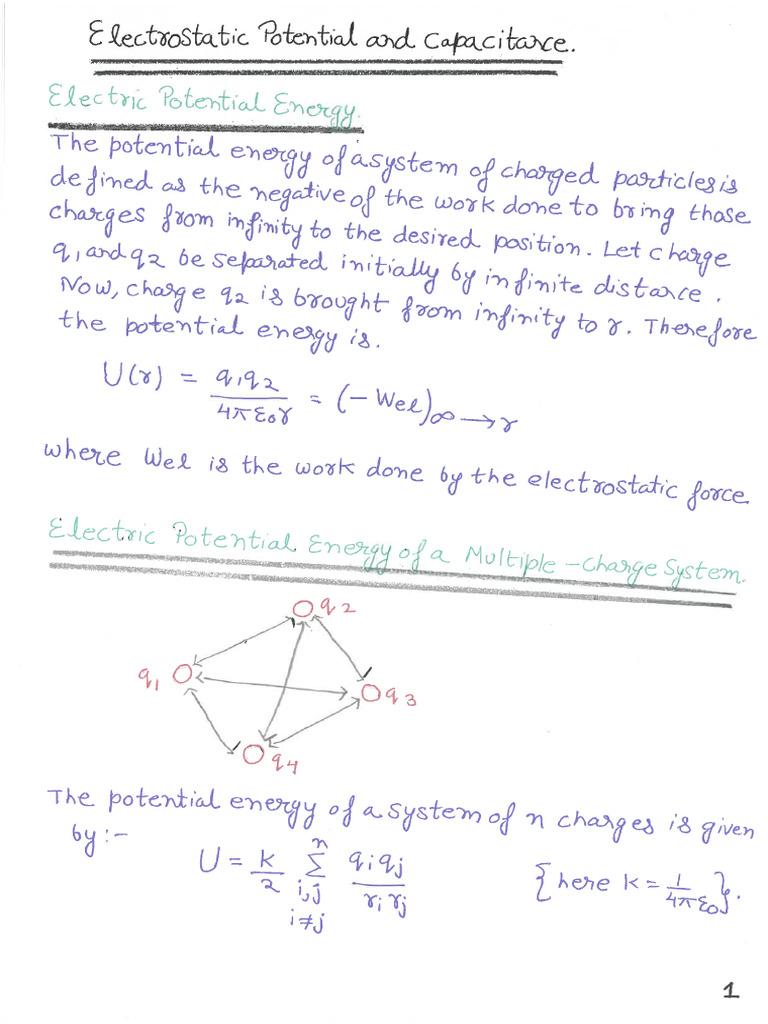 Electrostatic Potential and Capacitance.
Electric Potential Energy.
The potential energy of a system of charged particles is
defined as the negative of the work done to bring those
charges from infinity to the desired position. Let charge
q1 and q2 be separated initially by infinite distance.
Now, charge q2 is brought from infinity to r. Therefore
the potential energy is.
U(r) = q1q2 / 4πε0r = (-Wel)∞→r
where Wel is the work done by the electrostatic force
Electric Potential Energy of a Multiple-Charge System.
q2
q1
q3
q4
The potential energy of a system of n charges is given
by:-
U = K/2 n Σ i,j i≠j qiqj / rirj {here K = 1/4πε0}.
1